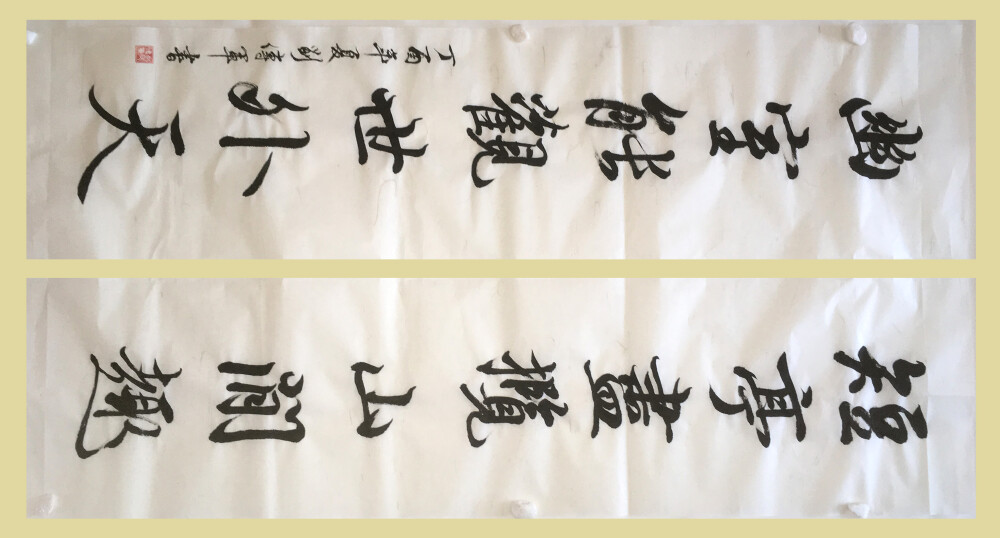 短亭盡攬山間趣
幽室能觀世外天
丁酉年夏劉偉軍書